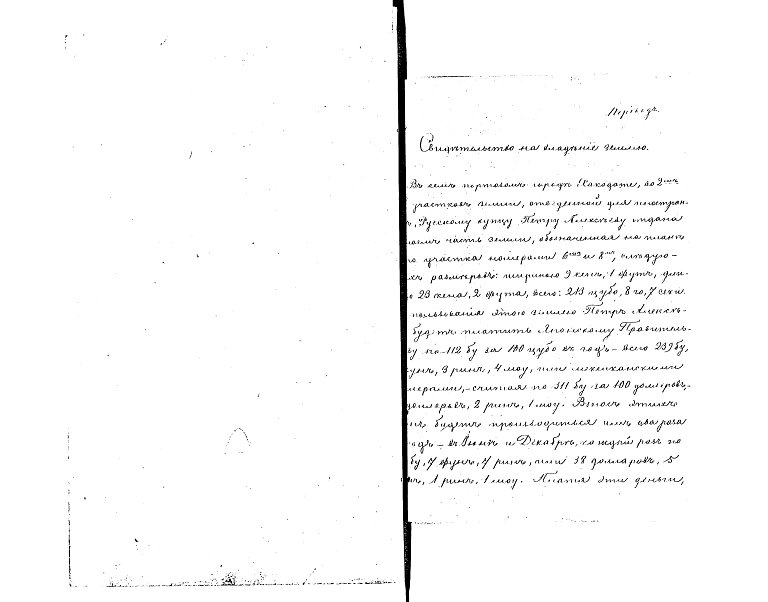 Переводъ.
Свидѣтельство на владѣніе землею.
Въ семъ портовомъ городѣ Хакодате, во 2омъ
участкѣ земли, отведенной для иностран-
Русскому купцу Петру Алексѣеву отдана
часть земли, обозначенная на планѣ
участка номерами 6ымъ и 8ымъ, слѣдую-
хъ размѣровъ: шириною 9 кенъ, 1 футъ, дли-
23 кена, 2 фута, всего: 213 цубо, 8 го, 7 секи
пользованія этою землею Петръ Алексѣ-
будетъ платить Японскому Правитель-
ву по 112 бу за 100 цубо въ годъ – всего 239 бу,
3 ринъ, 4 моу, или мексиканскими
лерами, – считая по 311 бу за 100 долларовъ,
долларовъ, 2 ринъ, 1 моу. Взносъ этихъ
будетъ производиться имъ два раза
годъ – въ Іюнѣ и Декабрѣ, каждый разъ по
бу, 7 фунъ, 7 ринъ, или 38 долларовъ, 5
1 ринъ, 1 моу. Платя эти деньги,